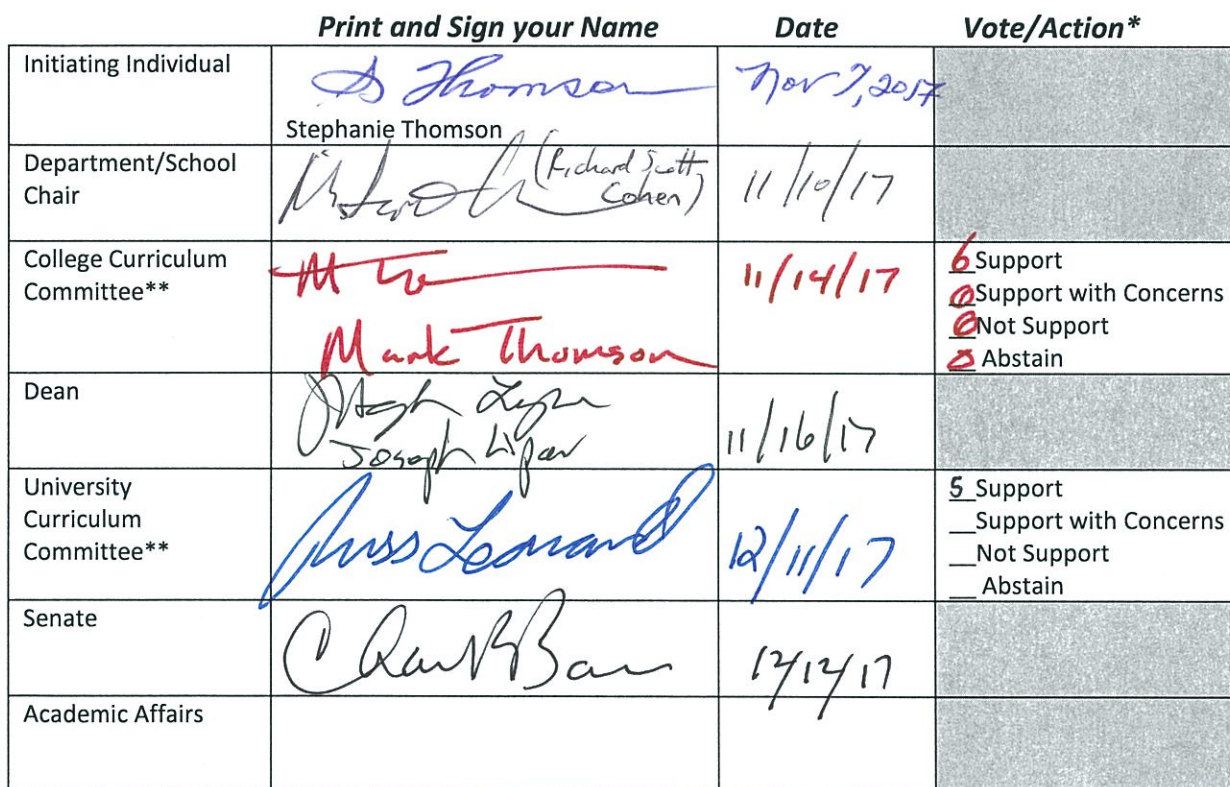 Print and Sign your Name Date Vote/Action*
Initiating Individual
S Thomson Nov 7, 2017
Stephanie Thomson
Department/School
Chair
(Richard Scott
Cohen) 11/10/17
College Curriculum
Committee** 11/14/17
Mark Thomson
6 Support
0 Support with Concerns
0 Not Support
0 Abstain
Dean
Joseph 11/16/17
University
Curriculum
Committee**
Russ Leonard 12/11/17
5 Support
__Support with Concerns
__Not Support
__ Abstain
Senate
12/12/17
Academic Affairs